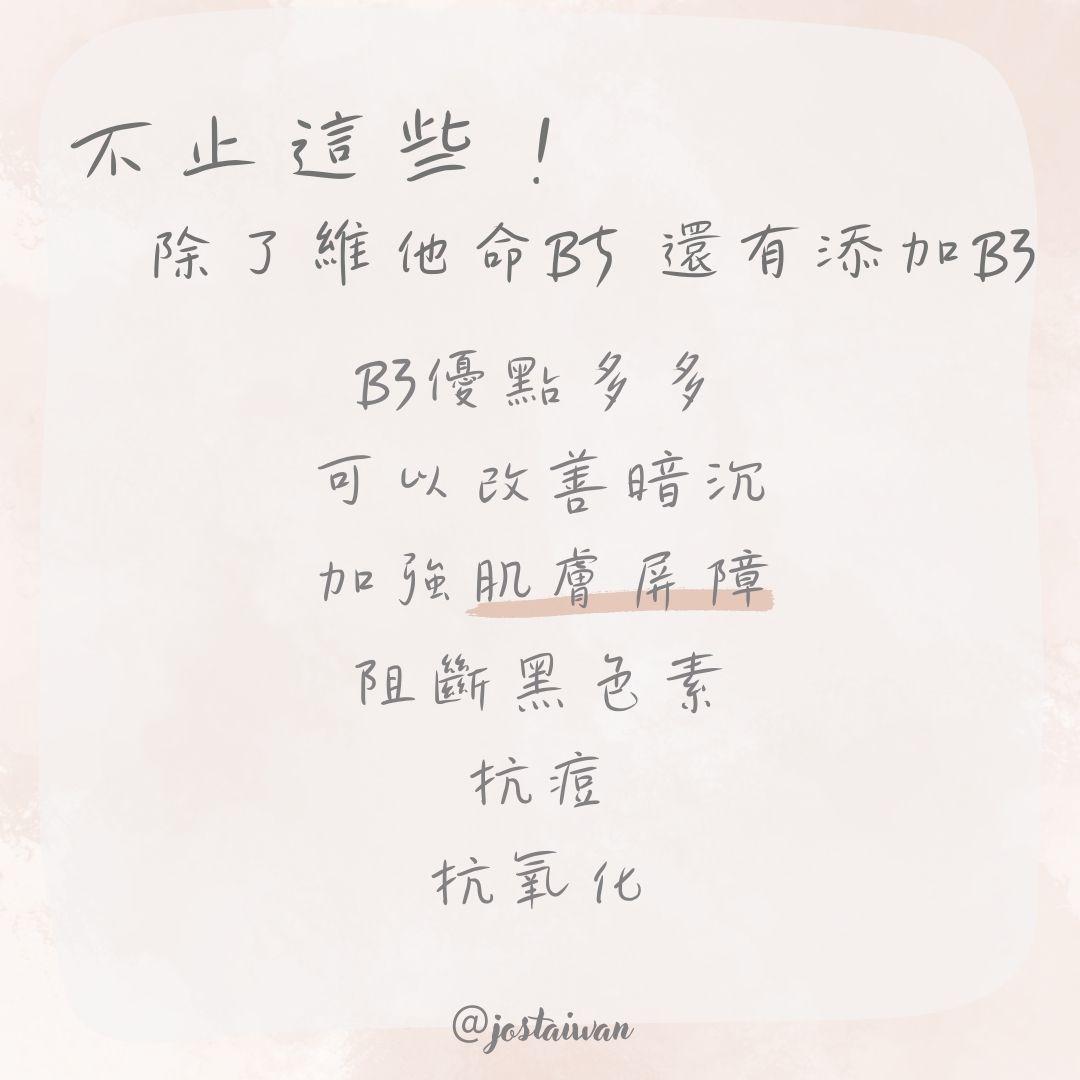 不止這些！
除了維他命B5 還有添加B3
B3優點多多
可以改善暗沉
加強肌膚屏障
阻斷黑色素
抗痘
抗氧化
@jostaiwan